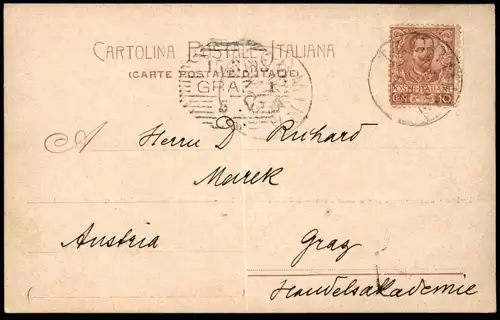 CARTOLINA POSTALE ITALIANA
(CARTE POSTALE D'ITALIE)
GRAZ 1
POSTE ITALIANE
CENT. 10
A Herrn D Richard
Marek
Austria Graz
Handelsakademie